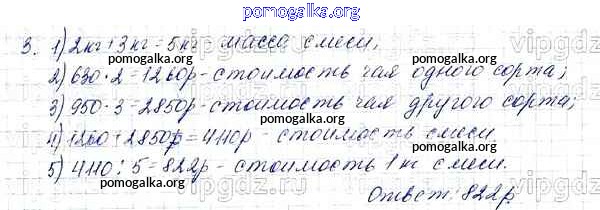 pomogalka.org
3. 1) 2кг+3кг=5кг масса смеси;
pomogalka.org pomogalka.org
2) 630·2=1260р-стоимость чая одного сорта;
3) 950·3=2850р-стоимость чая другого сорта;
pomogalka.org pomogalka.org
4) 1260+2850р=4110р-стоимость смеси.
5) 4110:5=822р-стоимость 1 кг смеси.
pomogalka.org pomogalka.org
Ответ: 822р.
pomogalka.org